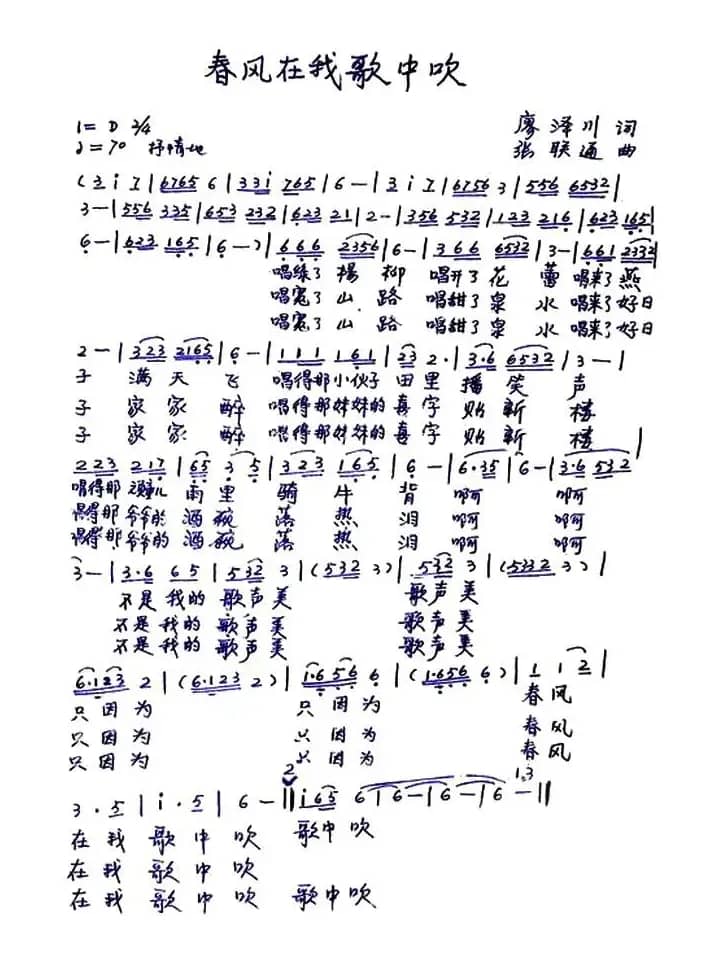 春风在我歌中吹
1=D 2/4 廖泽川 词
♩=70 抒情地 张联通 曲
(3 i 7 | 6765 6 | 33i 765 | 6 — | 3 i 7 | 6756 3 | 556 6532 |
3 — | 556 335 | 653 232 | 623 21 | 2 — | 356 532 | 123 216 | 623 165 |
6 — | 623 165 | 6 —) | 666 2356 | 6 — | 366 6532 | 3 — | 661 2332 |
唱绿了 杨柳 唱开了 花蕾 唱来了燕
唱宽了 山路 唱甜了 泉水 唱来了好日
唱宽了 山路 唱甜了 泉水 唱来了好日
2 — | 323 2165 | 6 — | 111 161 | 23 2· | 3·6 6532 | 3 — |
子 满天飞 唱得那小伙子 田里 播笑声
子 家家醉 唱得那妹妹的 喜字 贴新楼
子 家家醉 唱得那妹妹的 喜字 贴新楼
223 217 | 65 3·5 | 323 165 | 6 — | 6·35 | 6 — | 3·6 532 |
唱得那 雨里 骑牛背 啊 啊
唱得那爷爷的 酒碗 落热泪 啊 啊
唱得那爷爷的 酒碗 落热泪 啊 啊
3 — | 3·6 65 | 532 3 | (532 3) | 532 3 | (532 3) |
不是我的 歌声美 歌声美
不是我的 歌声美 歌声美
不是我的 歌声美 歌声美
6·123 2 | (6·123 2) | 1·656 6 | (1·656 6) | 1 1 2 |
只因为 只因为 春风
只因为 只因为 春风
只因为 只因为 春风
3·5 | i·5 | 6 — ‖ 2 i65 6 | 6 — | 6 — | 6 — | 6 1,3 — ‖
在我歌中吹 歌中吹
在我歌中吹
在我歌中吹 歌中吹